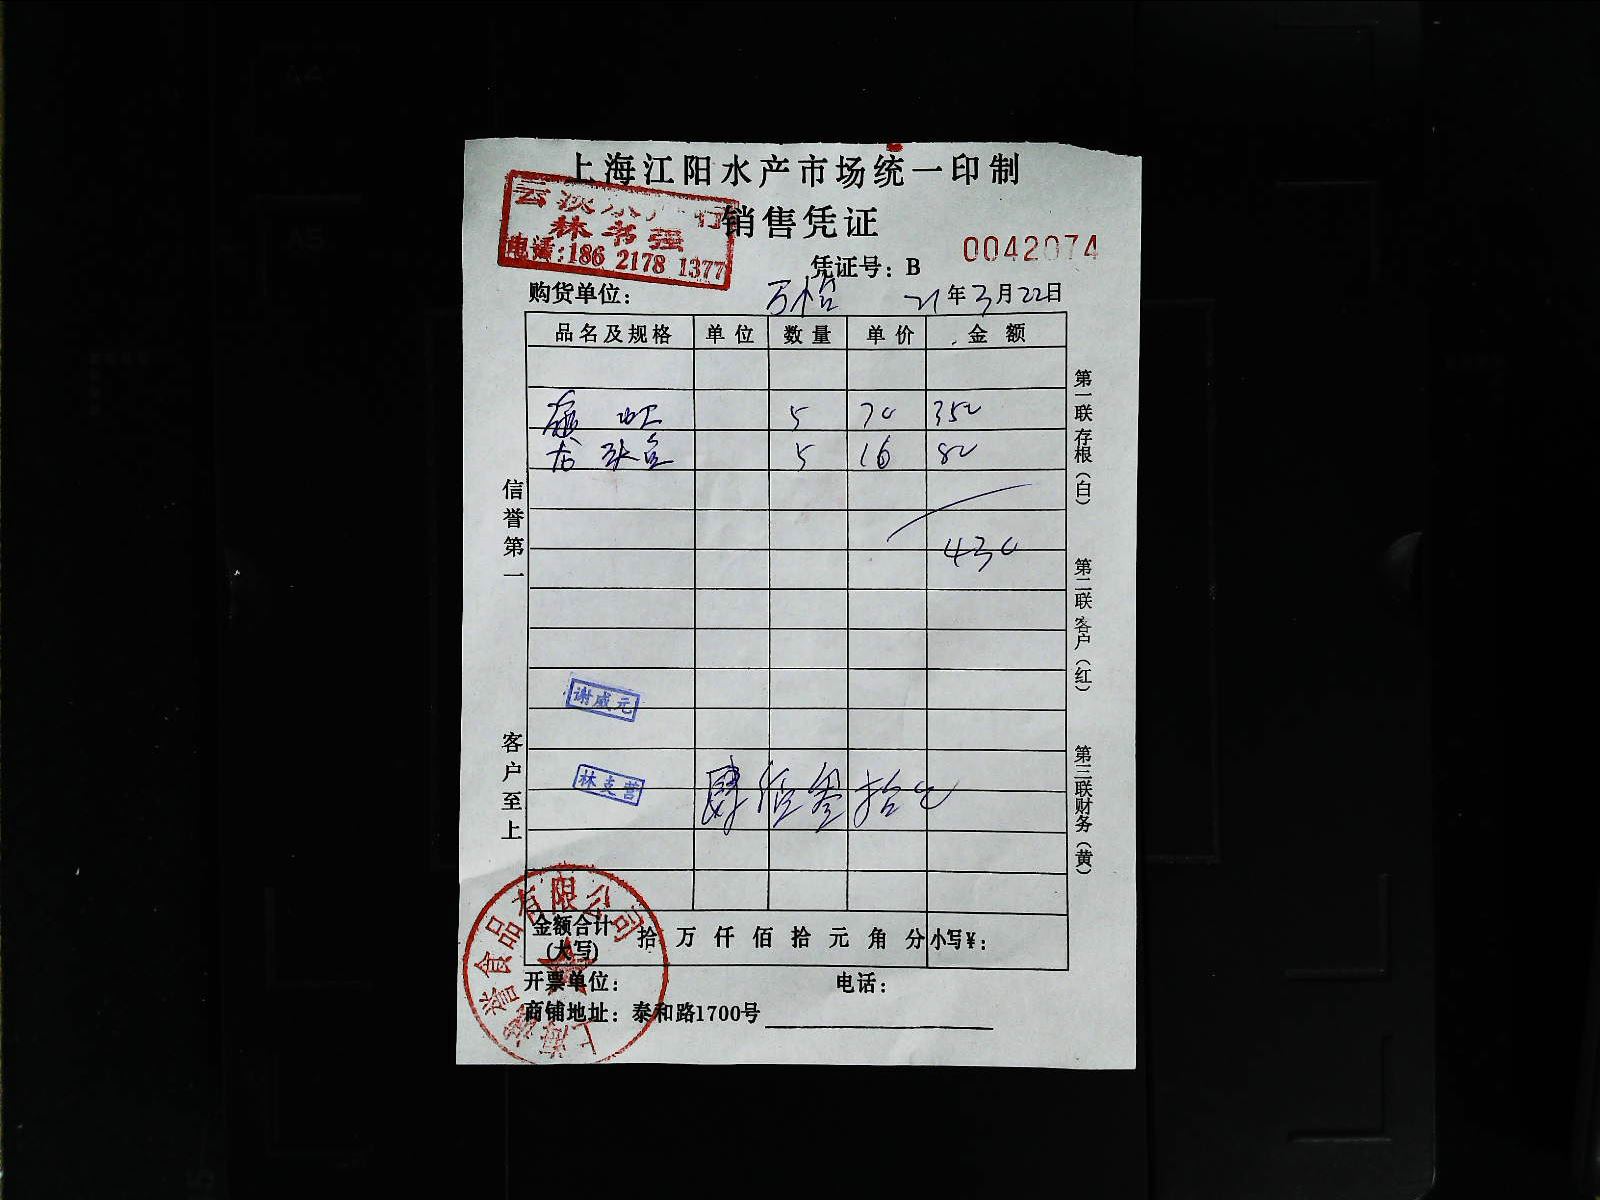 上海江阳水产市场统一印制
销售凭证
林书强
电话:186 2178 1377
凭证号: B 0042074
购货单位: 21年3月22日
品名及规格 单位 数量 单价 金额
5 70 350
龙头鱼 5 16 80
430
谢成元
林支营
肆佰叁拾元
金额合计(大写) 拾 万 仟 佰 拾 元 角 分 小写¥:
开票单位: 电话:
商铺地址: 泰和路1700号
信誉第一
客户至上
第一联 存根(白)
第二联 客户(红)
第三联 财务(黄)